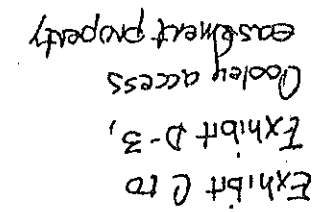 Exhibit C to
Exhibit D-3,
Cooley access
easement property